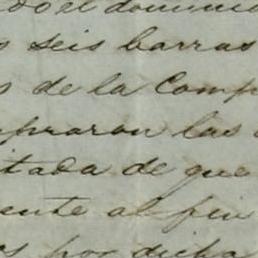 do el dominio
s seis barras
s de la Comp
praron las
itada de que
ente al fin
os por dicha